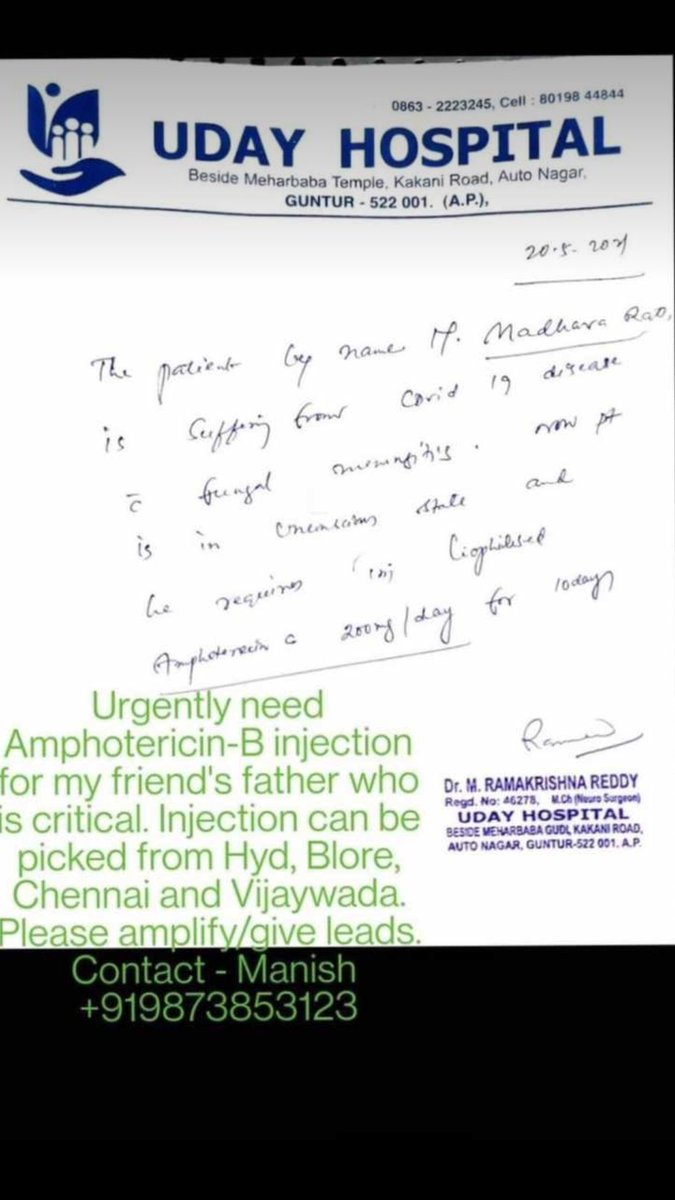 0863 - 2223245, Cell : 80198 44844
UDAY HOSPITAL
Beside Meharbaba Temple, Kakani Road, Auto Nagar,
GUNTUR - 522 001. (A.P.),
20.5.2021
The patient by name M. Madhava Rao,
is suffering from Covid 19 disease
c̄ fungal meningitis. now pt
is in conscious state and
he requires inj
Amphoterecin 200mg/day for 10days
Urgently need
Amphotericin-B injection
for my friend's father who
is critical. Injection can be
picked from Hyd, Blore,
Chennai and Vijaywada.
Please amplify/give leads.
Contact - Manish
+919873853123
Dr. M. RAMAKRISHNA REDDY
Regd. No: 46278, M.Ch (Neuro Surgeon)
UDAY HOSPITAL
BESIDE MEHARBABA GUDI, KAKANI ROAD,
AUTO NAGAR, GUNTUR-522 001. A.P.